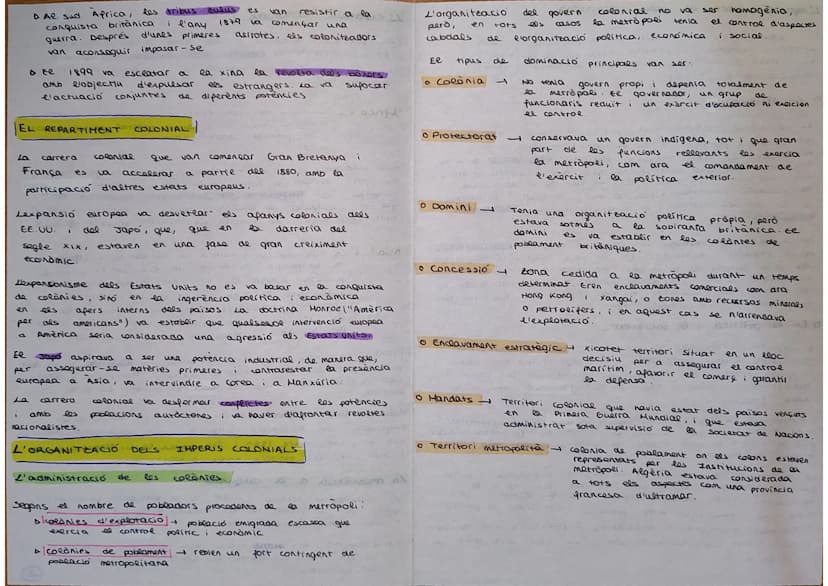 ▹ Al sud Àfrica, les tribus zulus es van resistir a la
conquista britànica i l'any 1879 va començar una
guerra. Després d'unes primeres derrotes, els colonitzadors
van aconseguir imposar-se
▹ El 1899 va esclatar a la Xina la revolta dels bòxers
amb l'objectiu d'expulsar els estrangers. La va sufocar
l'actuació conjuntes de diferents potències
EL REPARTIMENT COLONIAL
La carrera colonial que van començar Gran Bretanya i
França es va accelerar a partir del 1880, amb la
participació d'altres estats europeus.
L'expansió europea va desvetllar els afanys colonials dels
EE.UU. i del Japó, que, que en la darreria del
segle XIX, estaven en una fase de gran creiximent
econòmic.
L'expansonisme dels Estats Units no es va basar en la conquista
de colònies, sinó en la ingerència política i econòmica
en els afers interns dels països. La doctrina Monroe ("Amèrica
per als americans") va establir que qualsevol intervenció europea
a Amèrica seria considerada una agressió als Estats Units.
El Japó aspirava a ser una potència industrial, de manera que,
per assegurar-se matèries primeres i contrarestar la presència
europea a Àsia, va intervindre a Corea i a Manxúria.
La carrera colonial va desfermar conflictes entre les potències
i amb les poblacions autòctones i va haver d'afrontar revoltes
nacionalistes.
L'ORGANITZACIÓ DELS IMPERIS COLONIALS
L'administració de les colònies
Segons el nombre de pobladors procedents de la metròpoli:
▹ Colònies d'explotació → població emigrada escassa que
exercia el control polític i econòmic
▹ Colònies de poblament → rebien un fort contingent de
població metropolitana
L'organització del govern colonial no va ser homogènia,
però, en tots els casos la metròpoli tenia el control d'aspectes
cabdals de l'organització política, econòmica i social.
El tipus de dominació principales van ser:
o Colònia → No tenia govern propi i depenia totalment de
la metròpoli. El governador, un grup de
funcionaris reduït i un exèrcit d'ocupació hi exercien
el control
o Protectorat → conservava un govern indígena, tot i que gran
part de les funcions rellevants les exercia
la metròpoli, com ara el comandament de
l'exèrcit i la política exterior.
o Domini → Tenia una organització política pròpia, però
estava sotmès a la sobirania britànica. El
domini es va establir en les colònies de
poblament britàniques.
o Concessió → Zona cedida a la metròpoli durant un temps
determinat. Eren enclavaments comercials com ara
Hong Kong i Xangai, o zones amb recursos minerals
o petrolífers, i en aquest cas se n'arrendava
l'explotació.
o Enclavament estratègic → Xicotet territori situat en un lloc
decisiu per a assegurar el control
marítim, afavorir el comerç i garantir
la defensa.
o Mandats → Territori colonial que havia estat dels països vençuts
en la Primera Guerra Mundial, i que estava
administrat sota supervisió de la Societat de Nacions.
o Territori metropolità → colonia de poblament on els colons estaven
representats per les Institucions de la
metròpoli. Algèria estava considerada
a tots els aspectes com una província
francesa d'ultramar.